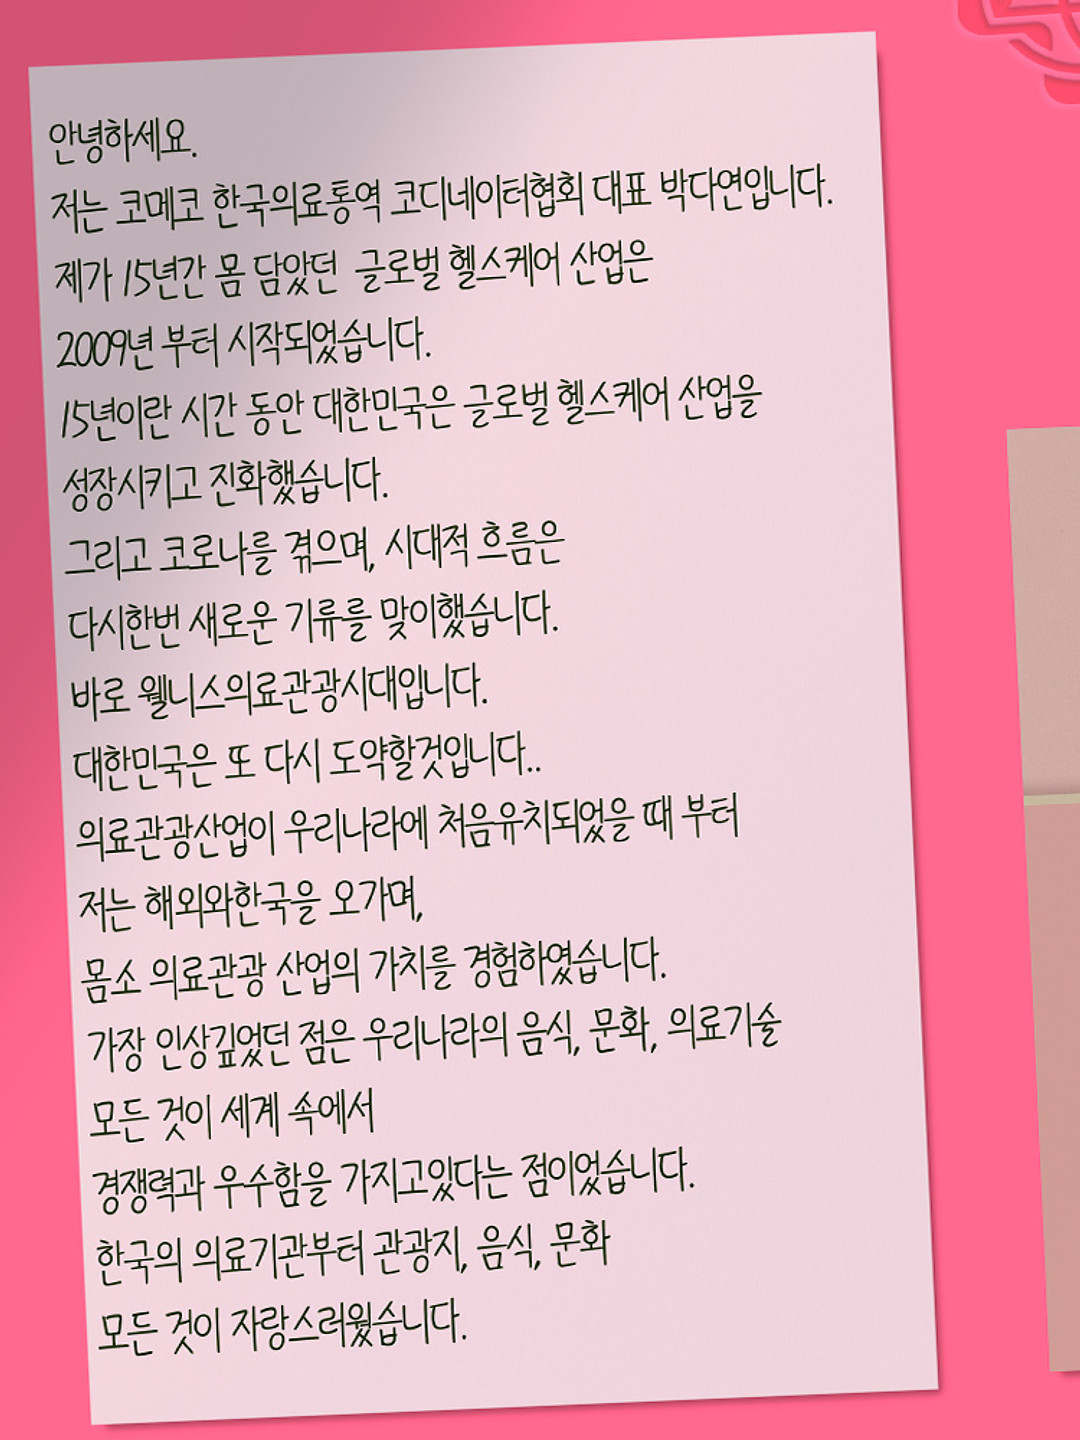 안녕하세요.
저는 코메코 한국의료통역 코디네이터협회 대표 박다연입니다.
제가 15년간 몸 담았던 글로벌 헬스케어 산업은
2009년 부터 시작되었습니다.
15년이란 시간 동안 대한민국은 글로벌 헬스케어 산업을
성장시키고 진화했습니다.
그리고 코로나를 겪으며, 시대적 흐름은
다시한번 새로운 기류를 맞이했습니다.
바로 웰니스의료관광시대입니다.
대한민국은 또 다시 도약할것입니다..
의료관광산업이 우리나라에 처음유치되었을 때 부터
저는 해외와한국을 오가며,
몸소 의료관광 산업의 가치를 경험하였습니다.
가장 인상깊었던 점은 우리나라의 음식, 문화, 의료기술
모든 것이 세계 속에서
경쟁력과 우수함을 가지고있다는 점이었습니다.
한국의 의료기관부터 관광지, 음식, 문화
모든 것이 자랑스러웠습니다.